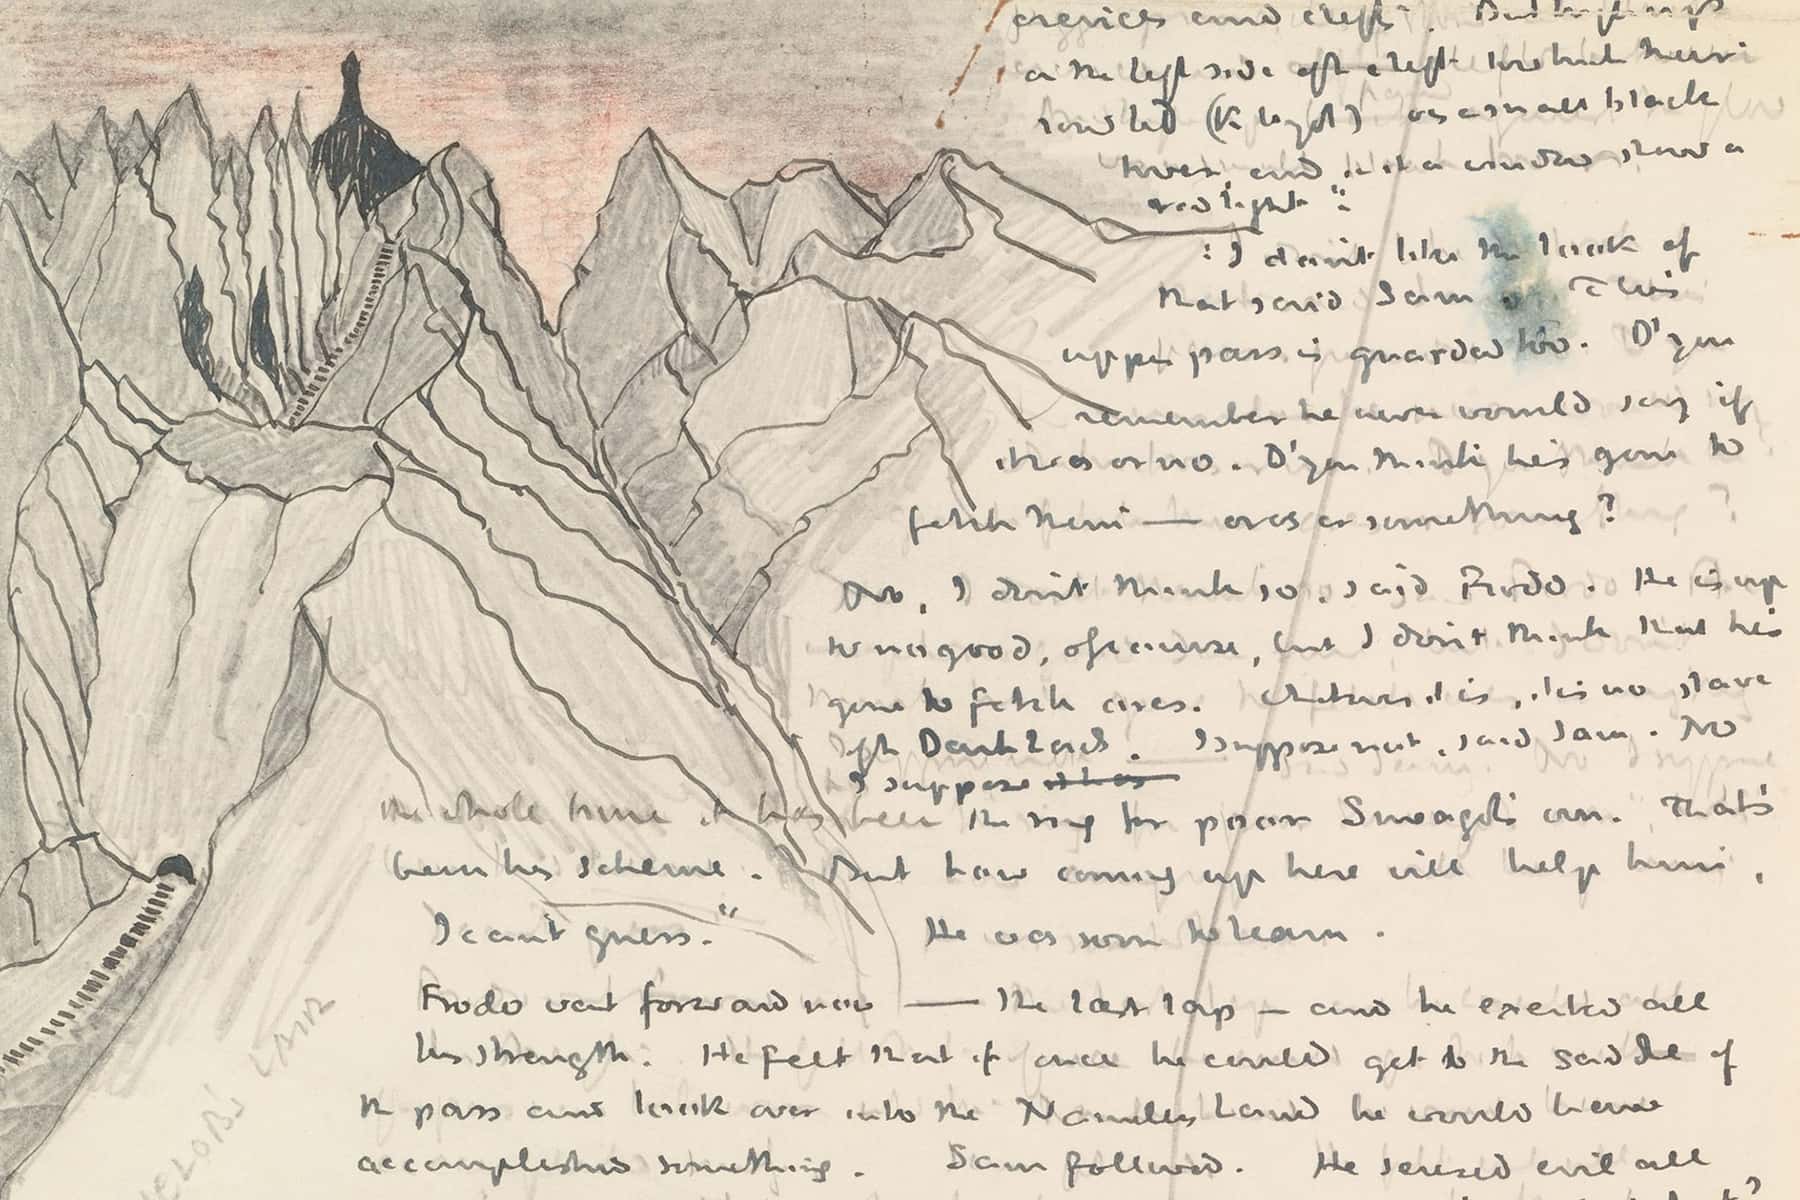 crevices and clefts. But high up
on the left side of the cleft to which their
road led (Kirith Ungol) was a small black
tower, and in it a window showed a
red light":
: I don't like the look of
that said Sam. This
upper pass is guarded too. D'you
remember he never would say if
it was or no. D'you think he's gone to
fetch them — orcs or something?
No, I don't think so, said Frodo. He is up
to no good, of course, but I don't think that he's
gone to fetch orcs. Whatever it is, it is no slave
of the Dark Lord's. I suppose not, said Sam. No
I suppose
the whole time it has been the ring for poor Smeagol's own. That's
been his scheme. But how coming up here will help him,
I can't guess." He was soon to learn.
Frodo went forward now — the last lap — and he exerted all
his strength. He felt that if once he could get to the saddle of
the pass and look over into the Nameless Land he would have
accomplished something. Sam followed. He sensed evil all
SHELOB'S LAIR